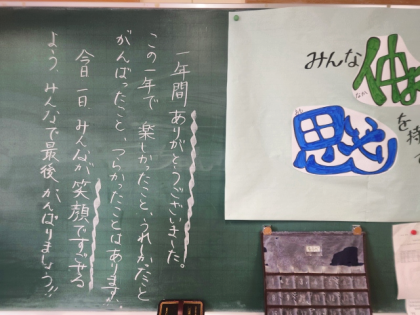 一年間ありがとうございました。
この一年で楽しかったこと、うれしかったこと
がんばったこと、つらかったことはあります。
今日一日みんなが笑顔ですごせる
よう、みんなで最後がんばりましょう!!
みんな
仲
を持
思いやり